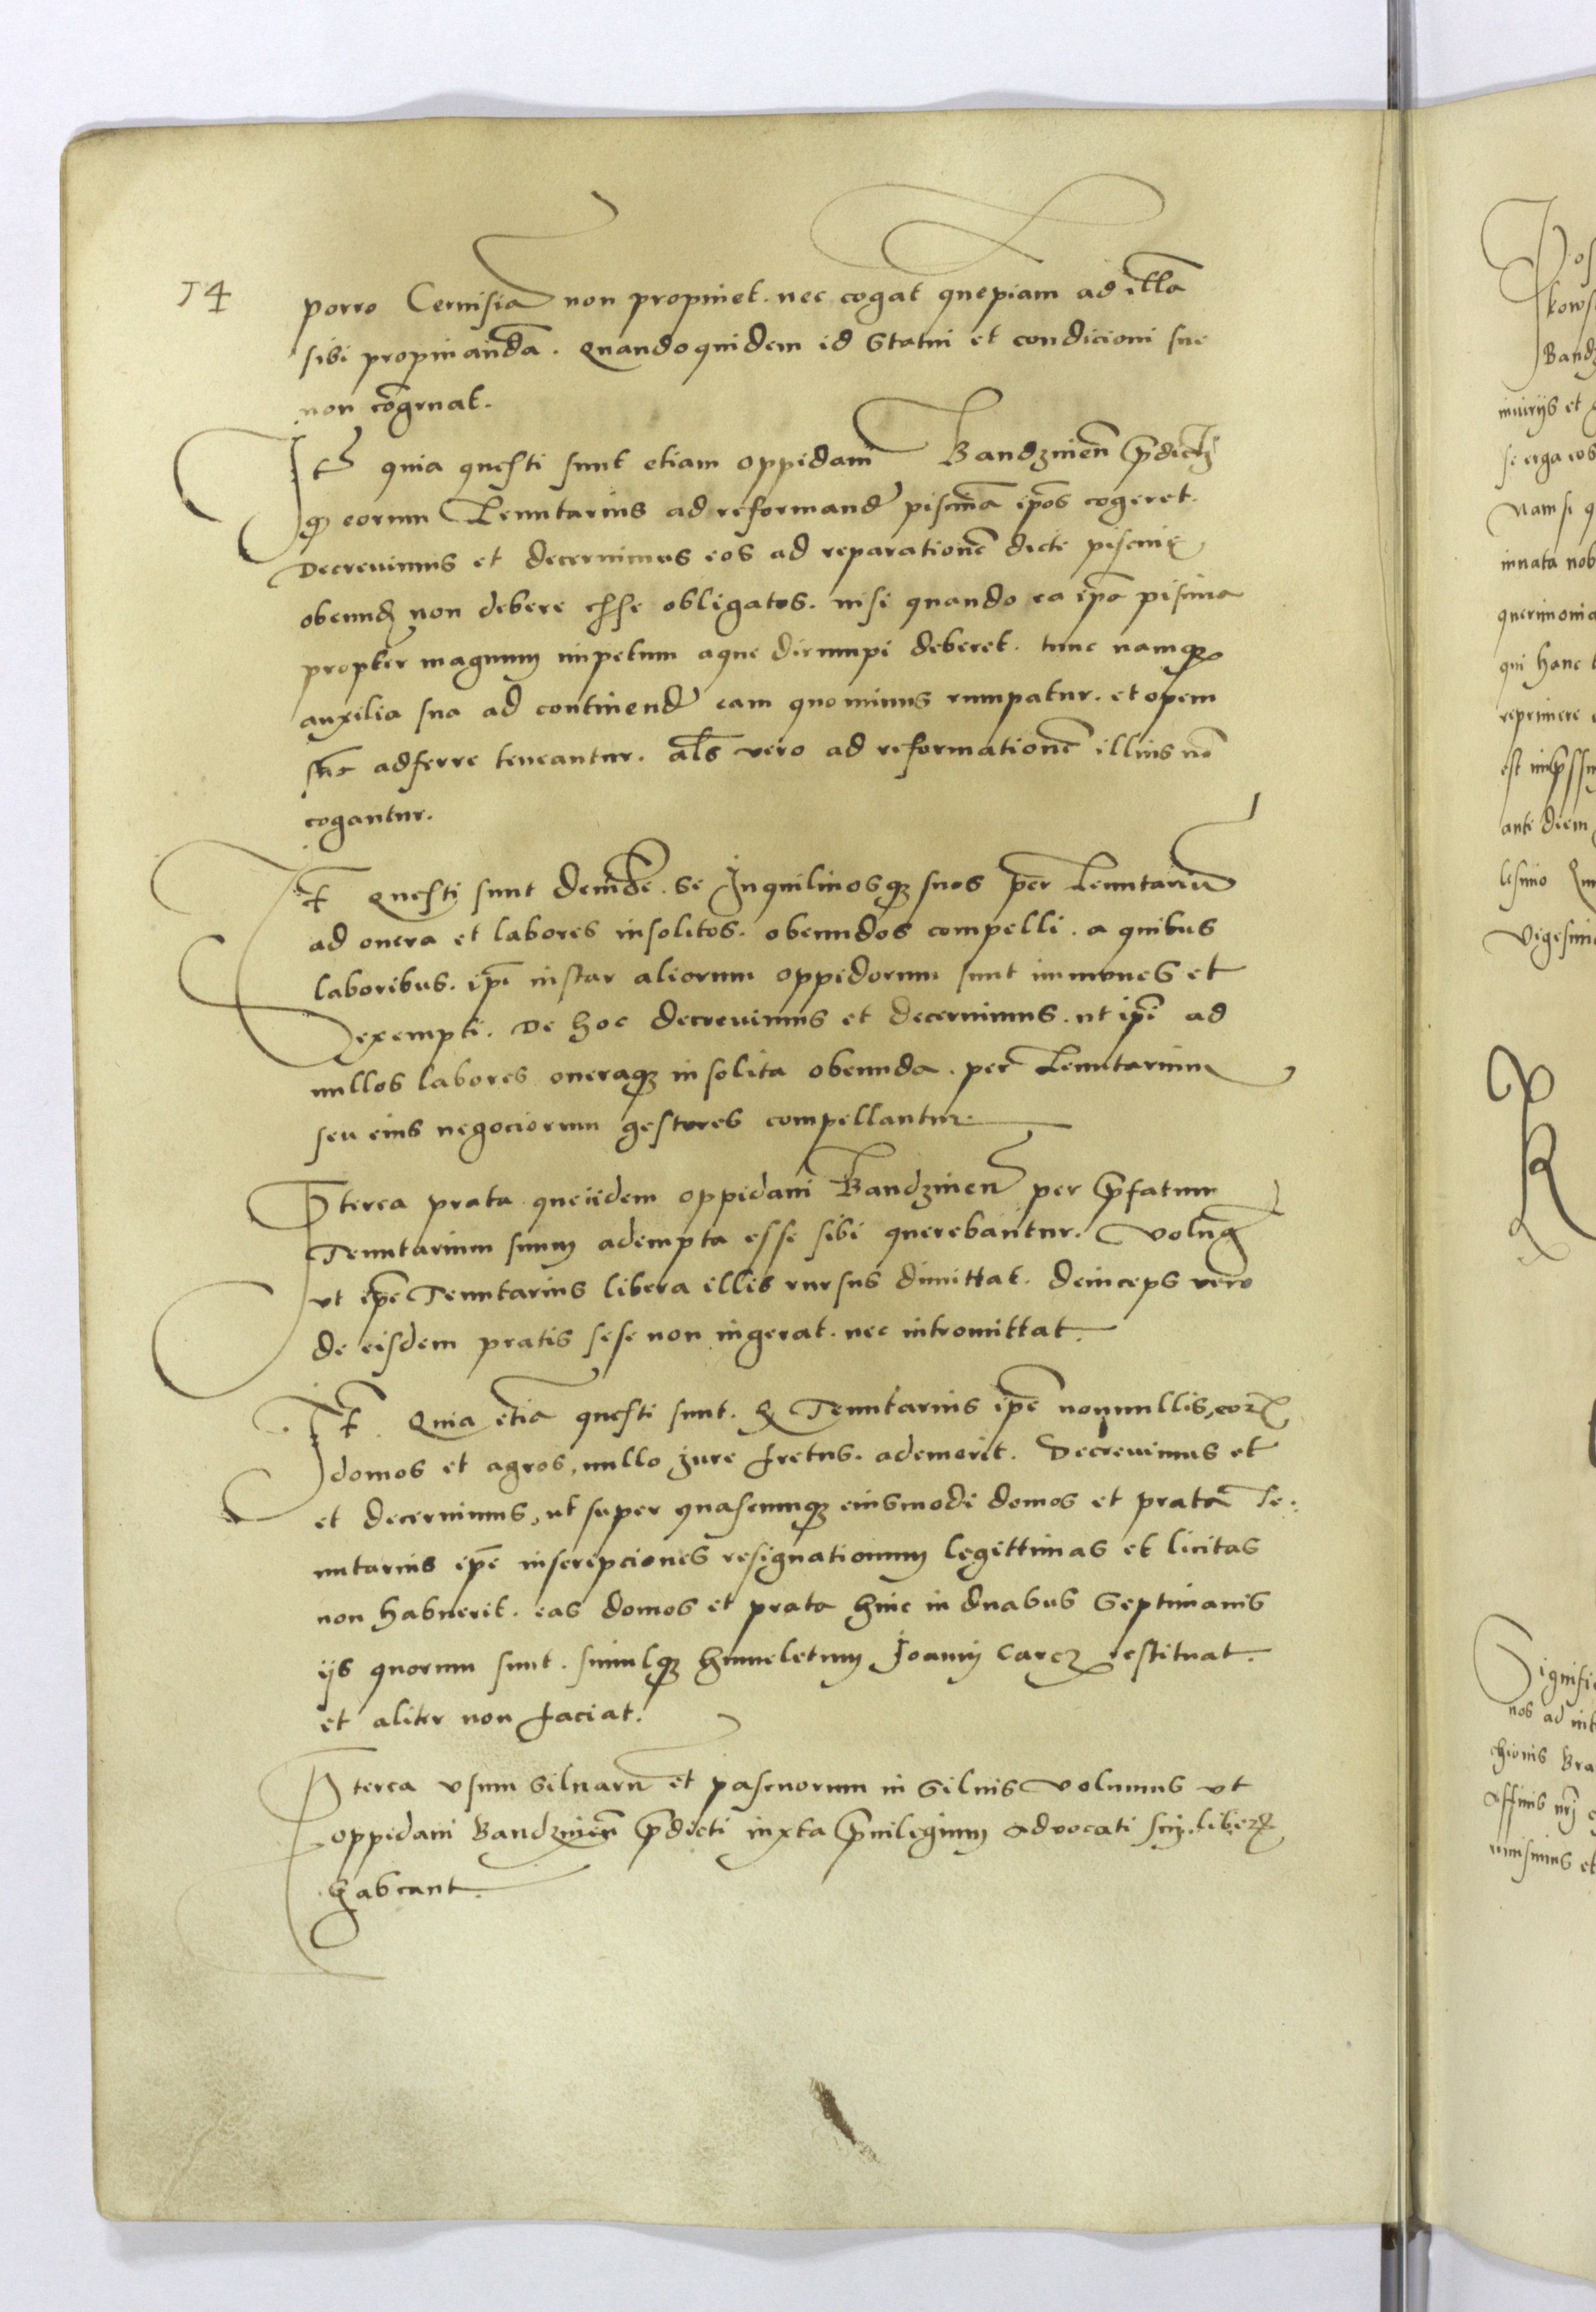 14
porro Ceruisiā non propinet. nec cogat quepiam ad illā
sibi propinandā. Quandoquidem id Statui et condicioni sue
non cōgruat.
Itē quia questi sunt etiam oppidani Bandzineñ p̄dicti
qꝫ eorum Tenutarius ad reformand piscinā ip̄os cogeret.
Decreuimus et decernimus eos ad reparationē dicte piscine
obeund non debere esse obligatos. nisi quando ea ip̄a piscina
propter magnum impetum aque dirumpi deberet. tunc namqꝫ
auxilia sua ad continend eam quominus rumpatur. et opem
suā adferre teneantur. al̄s vero ad reformationē illius nō
cogantur.
It̄ Questi sunt deinde. se Inquilinosqꝫ suos per Tenutariū
ad onera et labores insolitos. obeundos compelli. a quibus
laboribus. ip̄i instar aliorum oppidorum sunt immunes et
exempti. De hoc decreuimus et decernimus. ut ip̄i ad
nullos labores oneraqꝫ insolita obeunda. per Tenutarium
seu eius negociorum gestores compellantur.
P̄terea prata que iidem oppidani Bandzineñ per p̄fatum
Tenutarium suum adempta esse sibi querebantur. Volum9
vt ip̄e Tenutarius libera illis rursus dimittat. deinceps vero
de eisdem pratis sese non ingerat. nec intromittat.
It̄ Quia etiā questi sunt. qꝫ Tenutarius ip̄e nonnullis, eorꝝ
domos et agros, nullo jure fretus. ademerit. Decreuimus et
et decernimus, ut super quascumqꝫ eiusmodi domos et prata Te:
nutarius ip̄e inscripciones resignationum legittimas et licitas
non habuerit. eas domos et prata hinc in duabus Septimanis
ijs quorum sunt. simulqꝫ humuletum Joanni Carcz restituat.
et aliter non faciat.
P̄terea vsum siluarū et pascuorum in siluis volumus vt
oppidani Bandzineñ p̄dicti iuxta p̄uilegium aduocati sui. liberꝝ
habeant.
Bandz
iniurijs et
se erga eos
Nam si q
innata nob
querimonia
qui hanc
reprimere
ante diem
Vigesimo
Signifi
nos ad